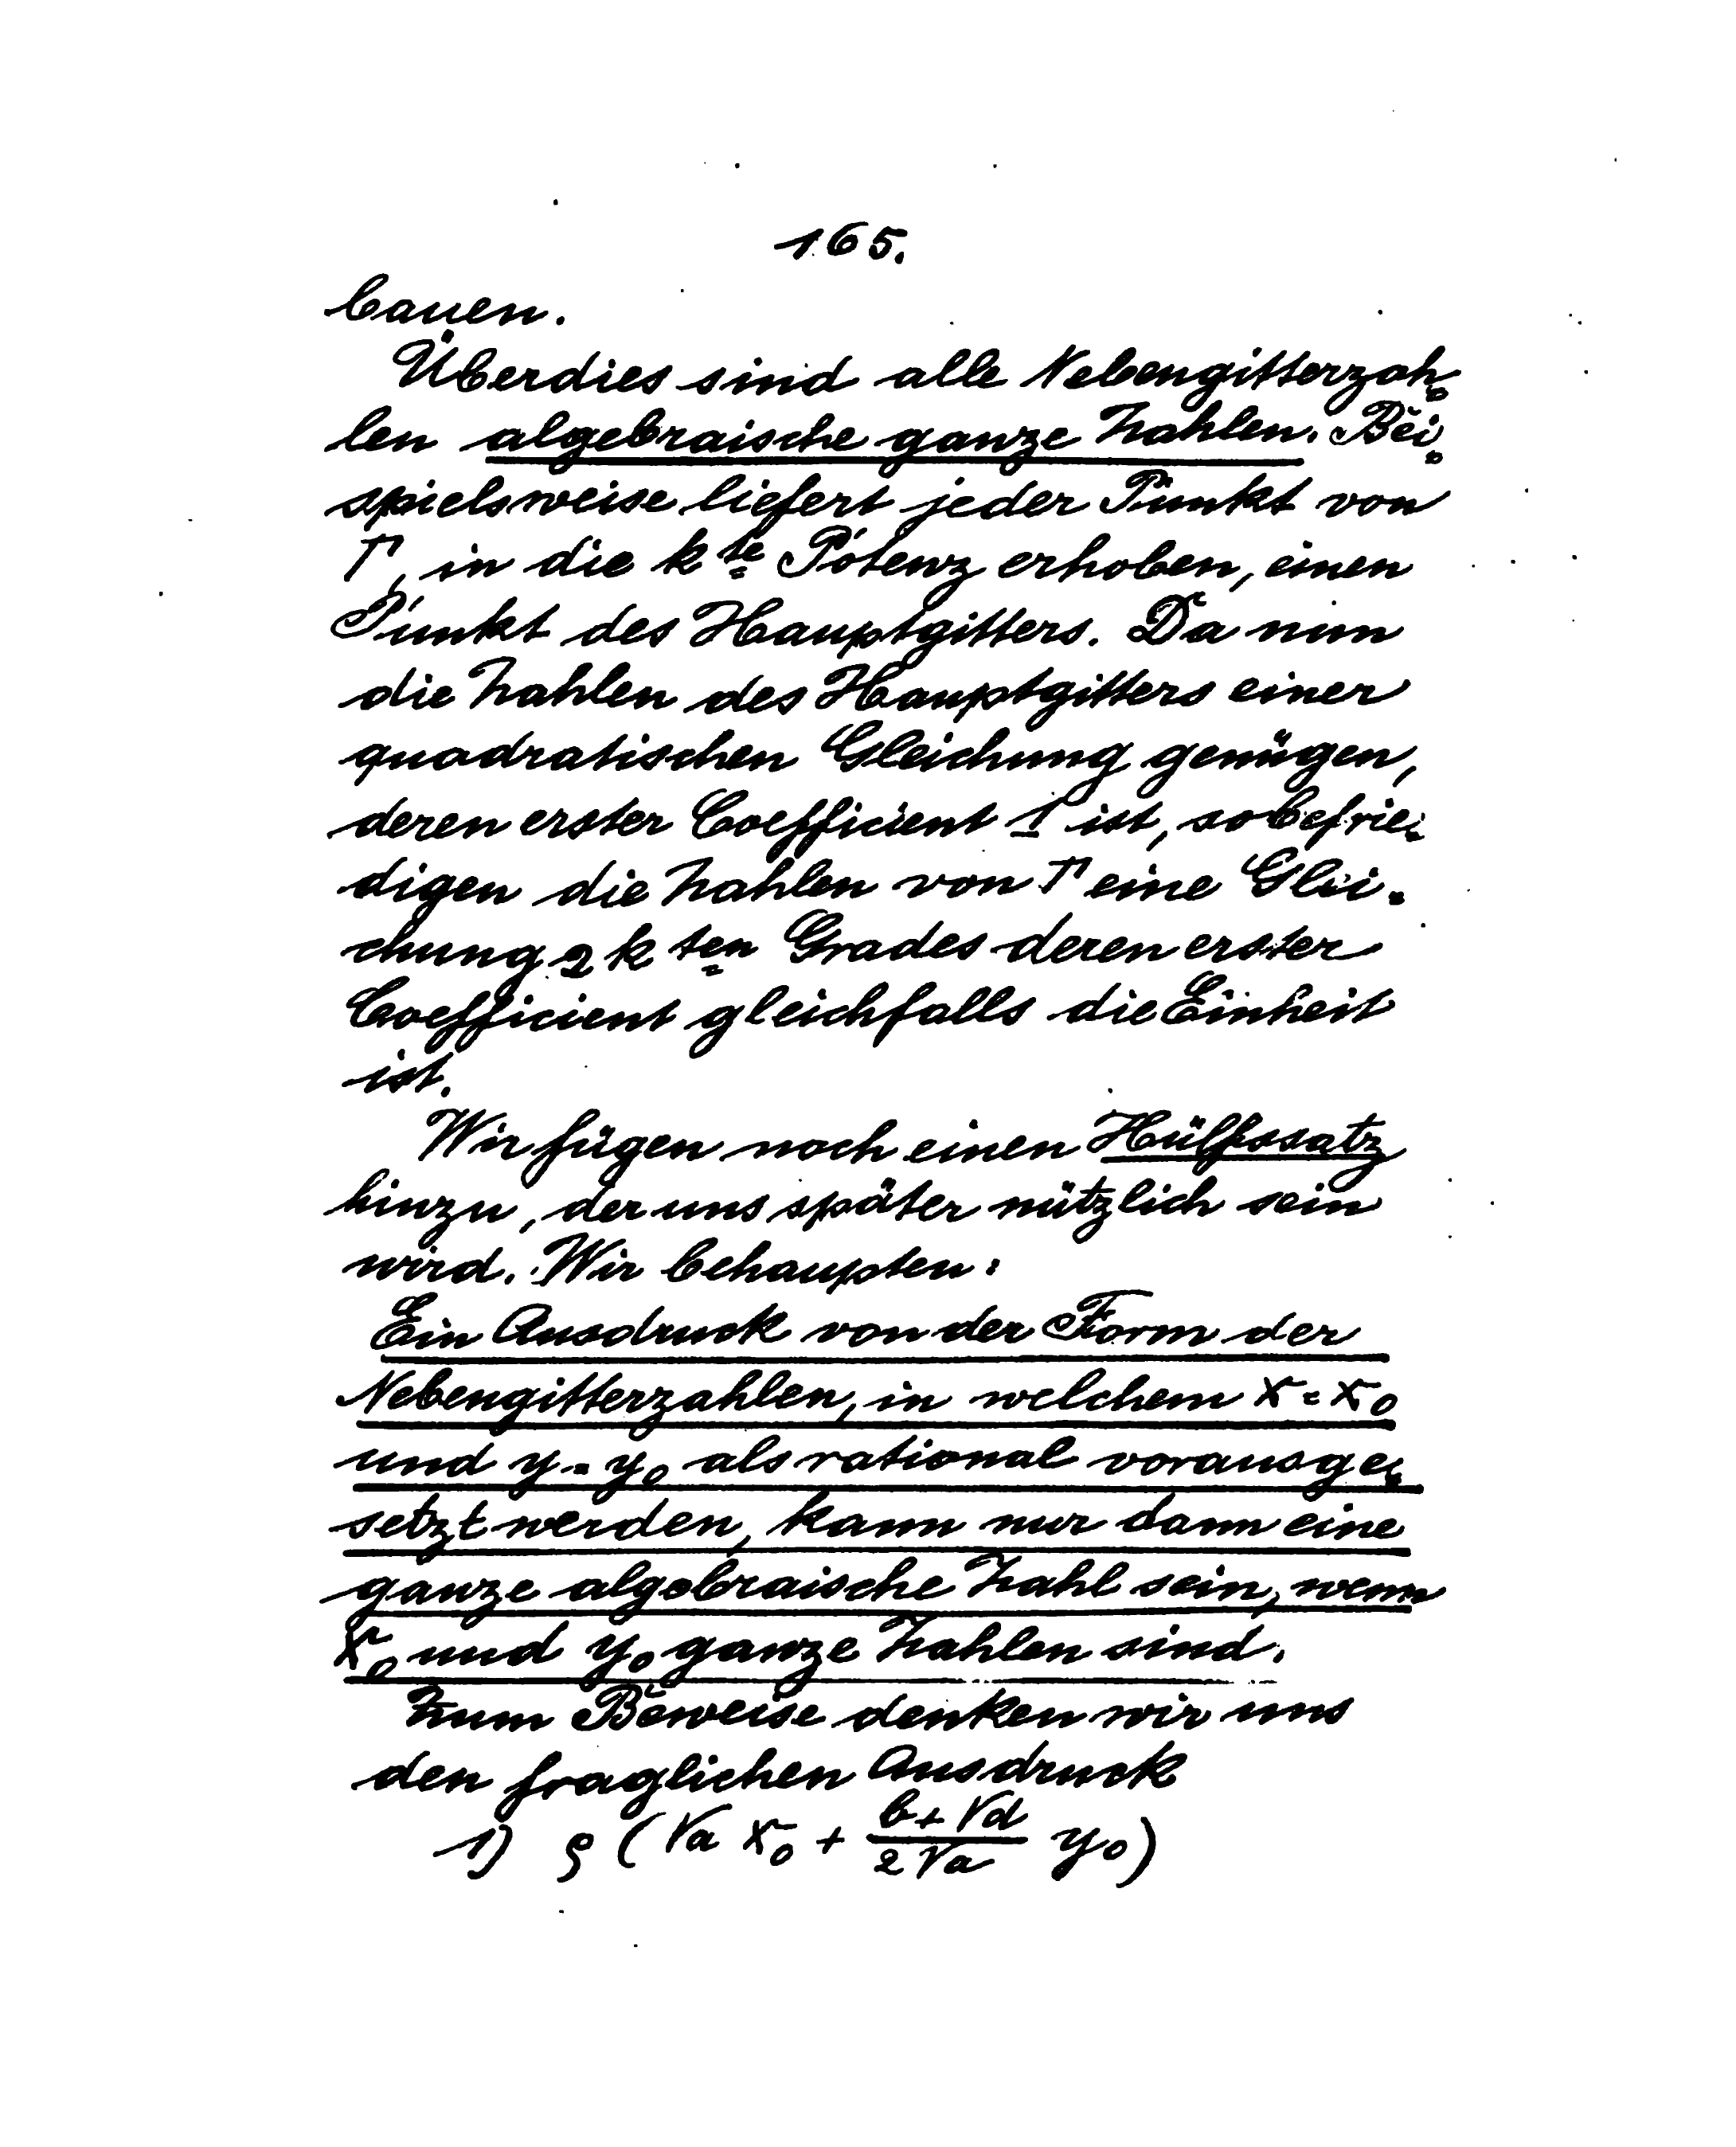 165.
bauen.
Überdies sind alle Nebengitterzah-
len algebraische ganze Zahlen. Bei-
spielsweise liefert jeder Punkt von
Γ, in die k te Potenz erhoben, einen
Punkt des Hauptgitters. Da nun
die Zahlen des Hauptgitters einer
quadratischen Gleichung genügen,
deren erster Coefficient 1 ist, so befrie-
digen die Zahlen von Γ eine Glei-
chung 2k ten Grades deren erster
Coefficient gleichfalls die Einheit
ist.
Wir fügen noch einen Hülfssatz
hinzu, der uns später nützlich sein
wird. Wir behaupten:
Ein Ausdruck von der Form der
Nebengitterzahlen, in welchem x = x₀
und y = y₀ als rational vorausge-
setzt werden, kann nur dann eine
ganze algebraische Zahl sein, wenn
x₀ und y₀ ganze Zahlen sind.
Zum Beweise denken wir uns
den fraglichen Ausdruck
1) ρ (√a x₀ + (b + √d)/(2√a) y₀)